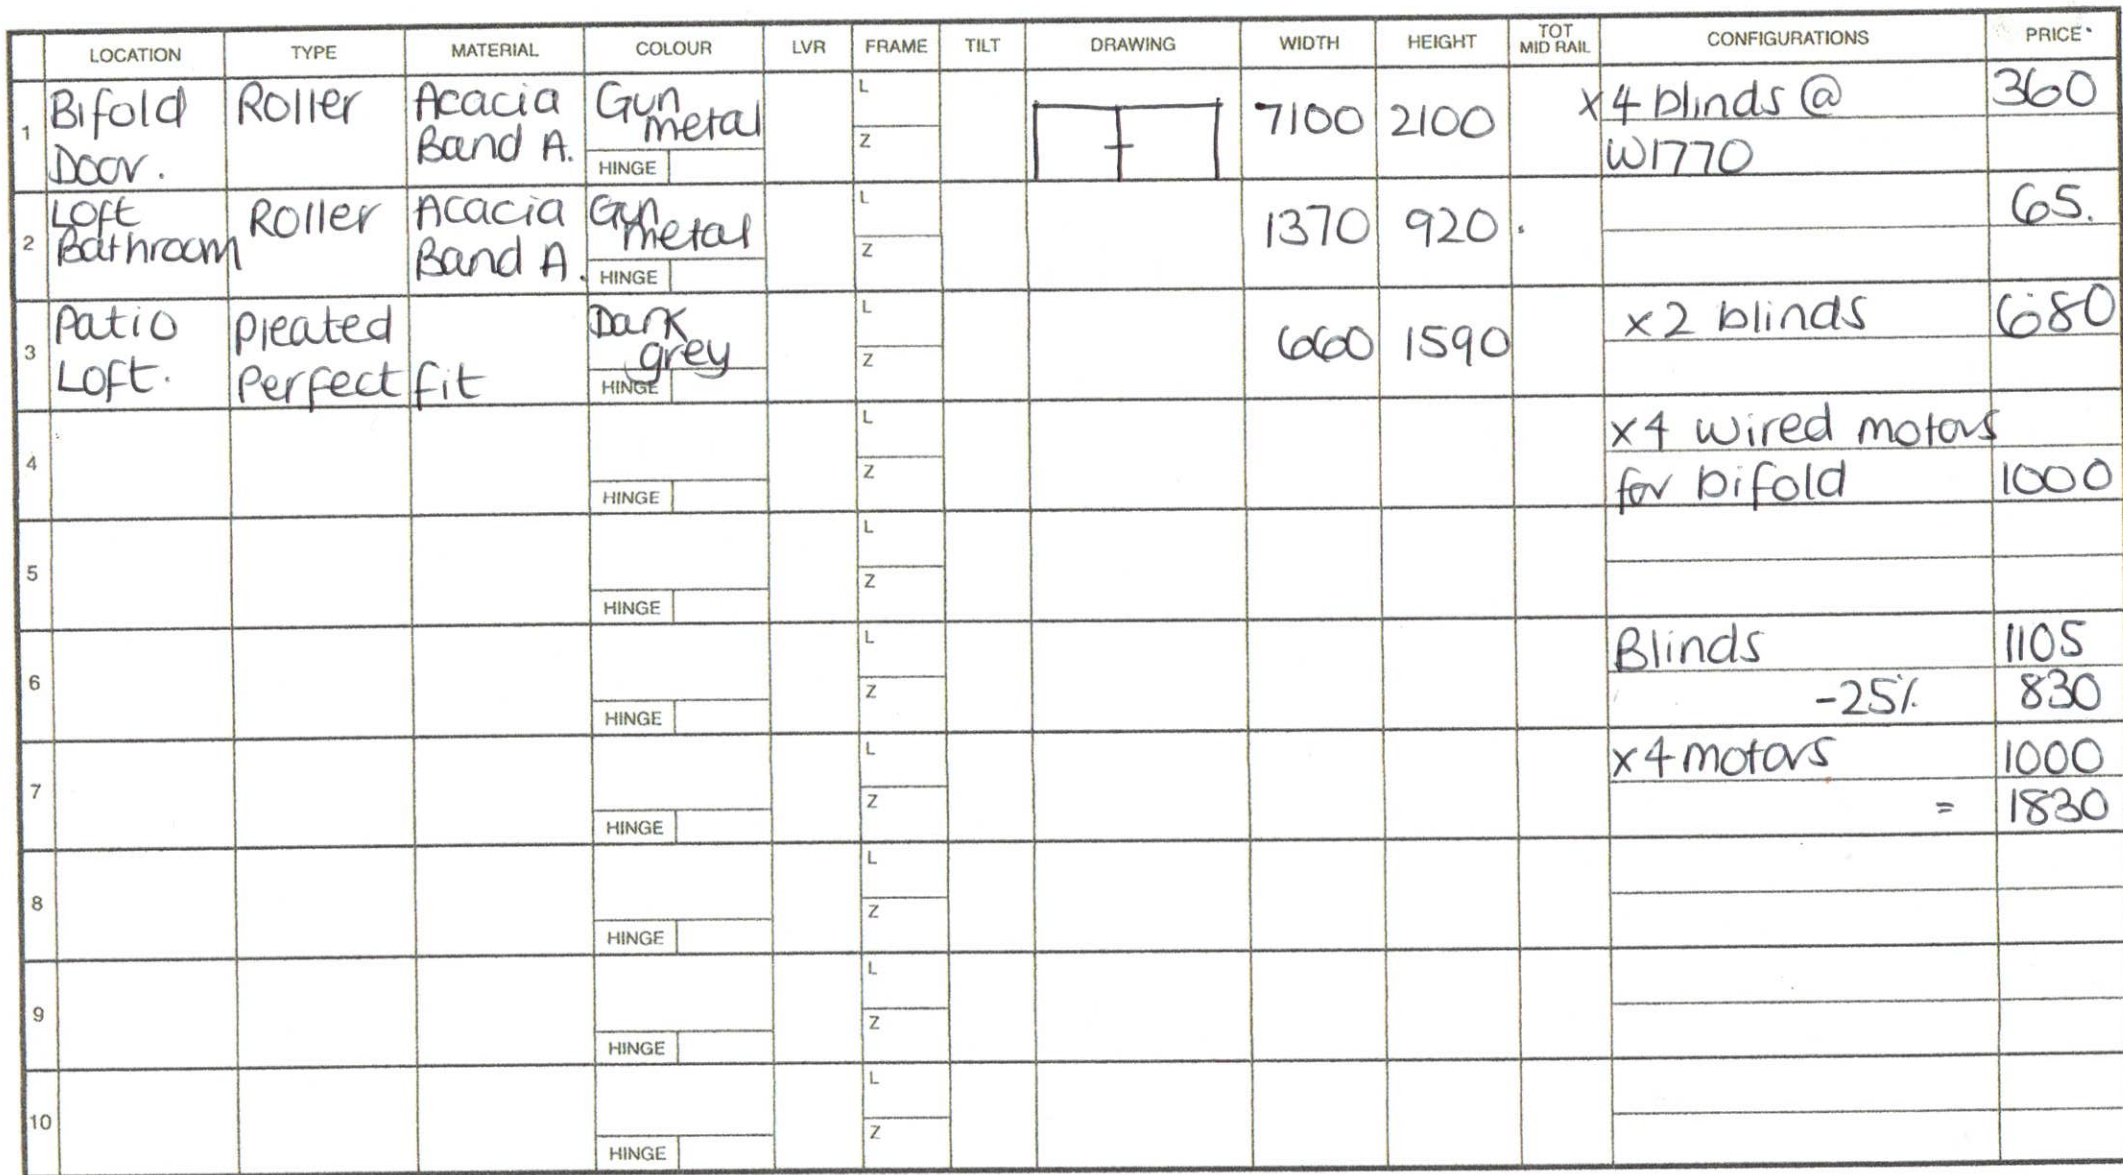 LOCATION TYPE MATERIAL COLOUR LVR FRAME TILT DRAWING WIDTH HEIGHT TOT MID RAIL CONFIGURATIONS PRICE
1 Bifold Door. Roller Acacia Band A. Gun metal HINGE L Z 7100 2100 x4 blinds @ W1770 360
2 Loft Bathroom Roller Acacia Band A. Gun metal HINGE L Z 1370 920. 65.
3 Patio Loft. Pleated Perfect fit Dark grey HINGE L Z 660 1590 x2 blinds 680
4 HINGE L Z x4 wired motors
for bifold 1000
5 HINGE L Z
6 HINGE L Z Blinds 1105
-25% 830
7 HINGE L Z x4 motors 1000
= 1830
8 HINGE L Z
9 HINGE L Z
10 HINGE L Z